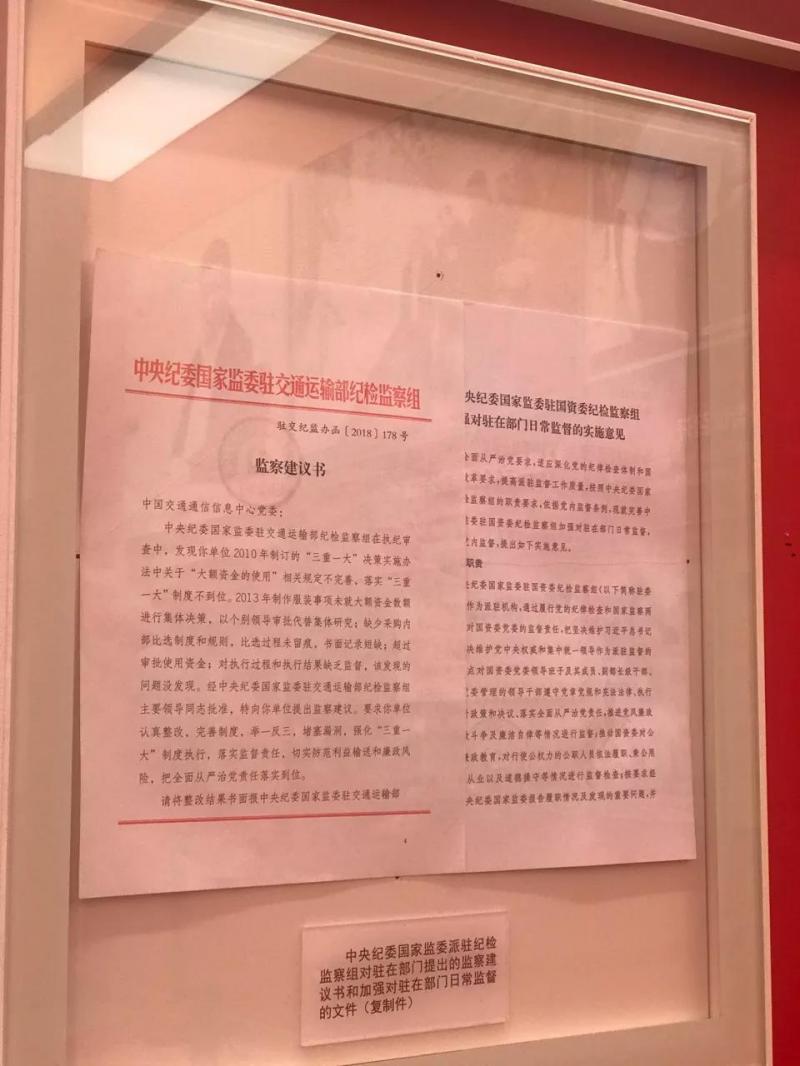 中央纪委国家监委驻交通运输部纪检监察组
驻交纪监办函［2018］178号
监察建议书
中国交通通信信息中心党委：
中央纪委国家监委驻交通运输部纪检监察组在执纪审
查中，发现你单位2010年制订的“三重一大”决策实施办
法中关于“大额资金的使用”相关规定不完善，落实“三重
一大”制度不到位。2013年制作服装事项未就大额资金数额
进行集体决策，以个别领导审批代替集体研究；缺少采购内
部比选制度和规则，比选过程未留痕，书面记录短缺；超过
审批使用资金；对执行过程和执行结果缺乏监督，该发现的
问题没发现。经中央纪委国家监委驻交通运输部纪检监察组
主要领导同志批准，特向你单位提出监察建议。要求你单位
认真整改，完善制度，举一反三，堵塞漏洞，强化“三重一
大”制度执行，落实监督责任，切实防范利益输送和廉政风
险，把全面从严治党责任落实到位。
请将整改结果书面报中央纪委国家监委驻交通运输部
央纪委国家监委驻国资委纪检监察组
强对驻在部门日常监督的实施意见
全面从严治党要求，适应深化党的纪律检查体制和国
改革要求，提高派驻监督工作质量，按照中央纪委国家
检监察组的职责要求，依据党内监督条例，现就完善中
监委驻国资委纪检监察组加强对驻在部门日常监督，
党内监督，提出如下实施意见。
职责
纪委国家监委驻国资委纪检监察组（以下简称驻委
作为派驻机构，通过履行党的纪律检查和国家监察两
对国资委党委的监督责任，把坚决维护习近平总书记
决维护党中央权威和集中统一领导作为派驻监督的
点对国资委党委领导班子及其成员、副部长级干部、
党委管理的领导干部遵守党章党规和宪法法律、执行
针政策和决议、落实全面从严治党责任，推进党风廉政
败斗争及廉洁自律等情况进行监督；推动国资委对公
廉政教育，对行使公权力的公职人员依法履职、秉公用
从业以及道德操守等情况进行监督检查；按要求经
央纪委国家监委报告履职情况及发现的重要问题，并
中央纪委国家监委派驻纪检
监察组对驻在部门提出的监察建
议书和加强对驻在部门日常监督
的文件（复制件）